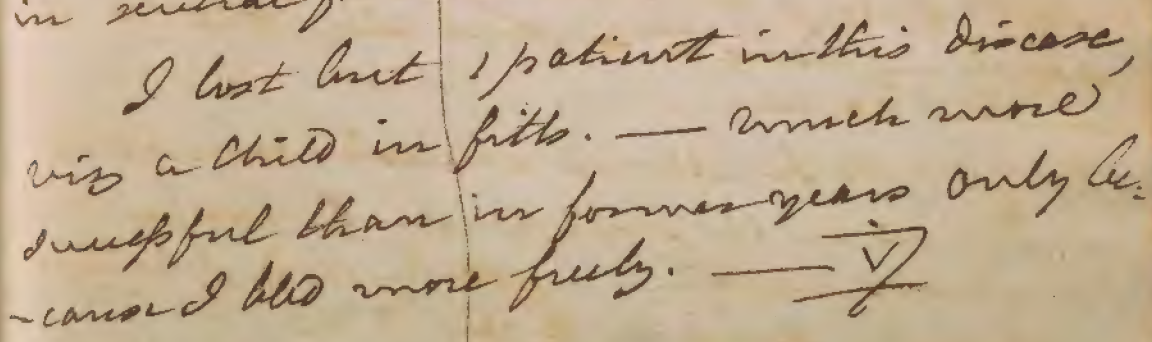 in several
I lost but 1 patient in this disease,
viz a Child in fitts. — much more
successful than in former years only be=
-cause I bled more freely. — V